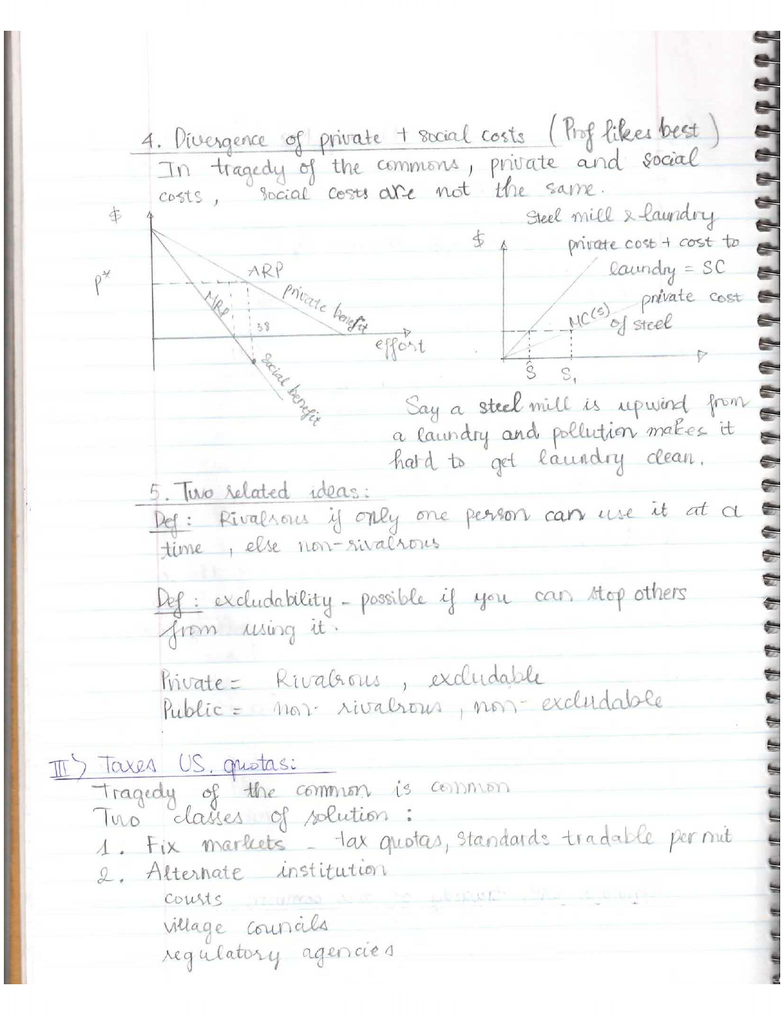 4. Divergence of private + social costs (Prof likes best)
In tragedy of the commons, private and social
costs, social costs are not the same.
$
P*
ARP
MRP
private benefit
58
effort
social benefit
Steel mill & laundry
$
private cost + cost to
laundry = SC
private cost
MC(S) of steel
S S₁
Say a steel mill is upwind from
a laundry and pollution makes it
hard to get laundry clean.
5. Two related ideas:
Def: Rivalrous if only one person can use it at a
time, else non-rivalrous
Def: excludability - possible if you can stop others
from using it.
Private = Rivalrous, excludable
Public = non-rivalrous, non-excludable
III) Taxes US. quotas:
Tragedy of the common is common
Two classes of solution:
1. Fix markets - tax quotas, standards tradable permit
2. Alternate institution
courts
village councils
regulatory agencies